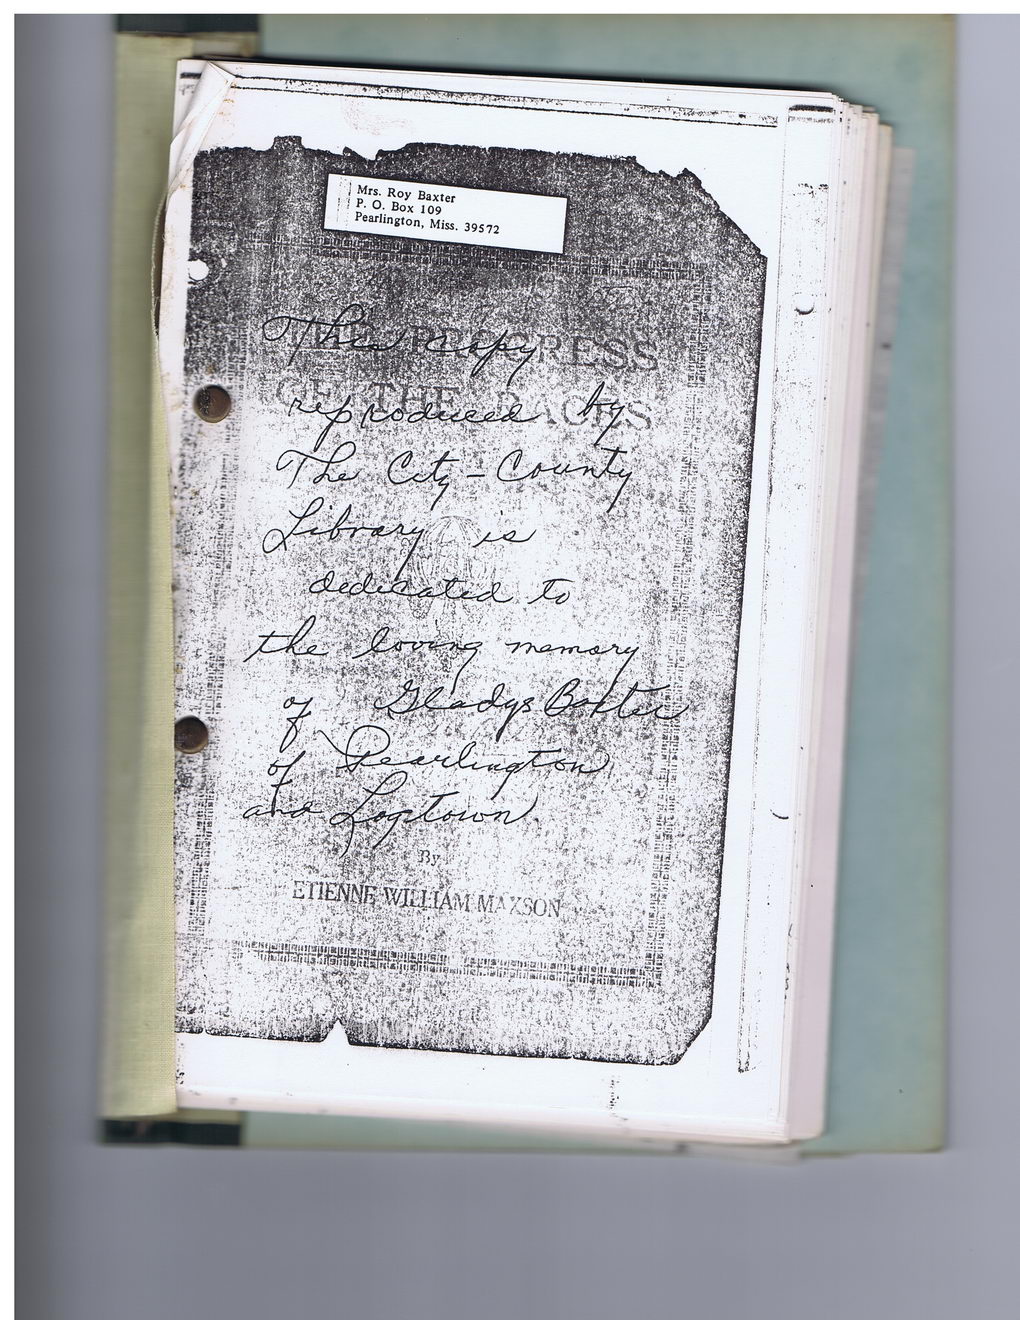 Mrs. Roy Baxter
P. O. Box 109
Pearlington, Miss. 39572
THE PROGRESS
OF THE RACES
This copy
reproduced by
The City-County
Library is
dedicated to
the loving memory
of Gladys Baxter
of Pearlington
and Logtown.
By
ETIENNE WILLIAM MAXSON